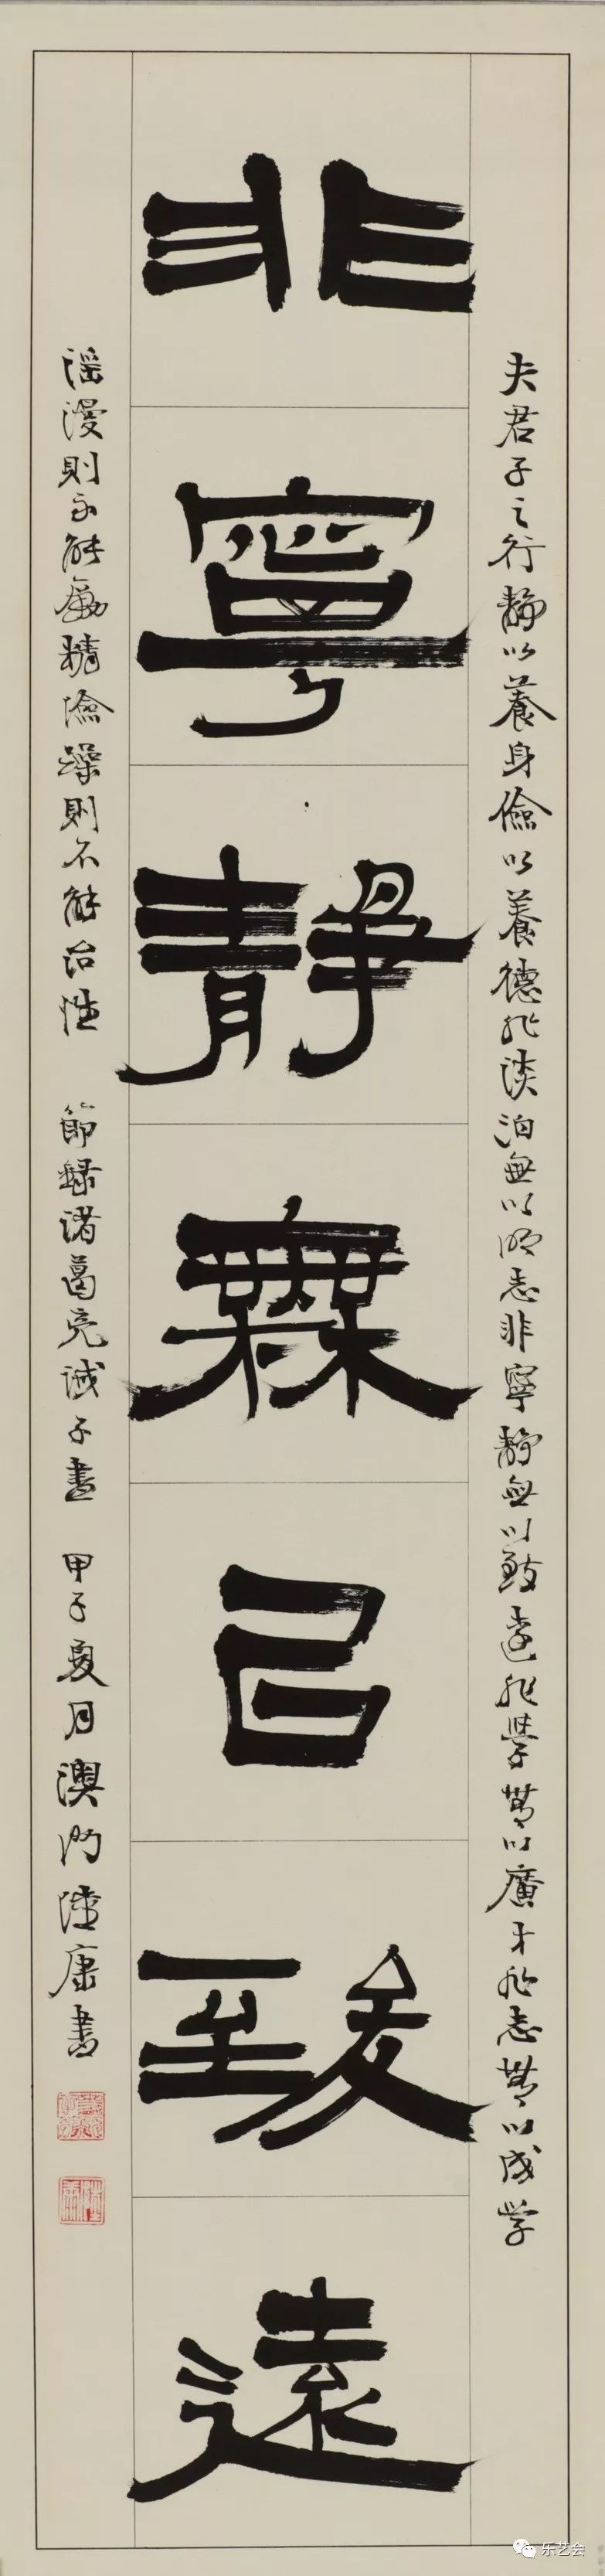 夫君子之行靜以養身儉以養德非淡泊無以明志非寧靜無以致遠非學無以廣才非志無以成學
非寧靜無㠯致遠
漫則不能勵精險躁則不能治性 節録诸葛亮诫子書 甲子夏月澳门陸康書
乐艺会